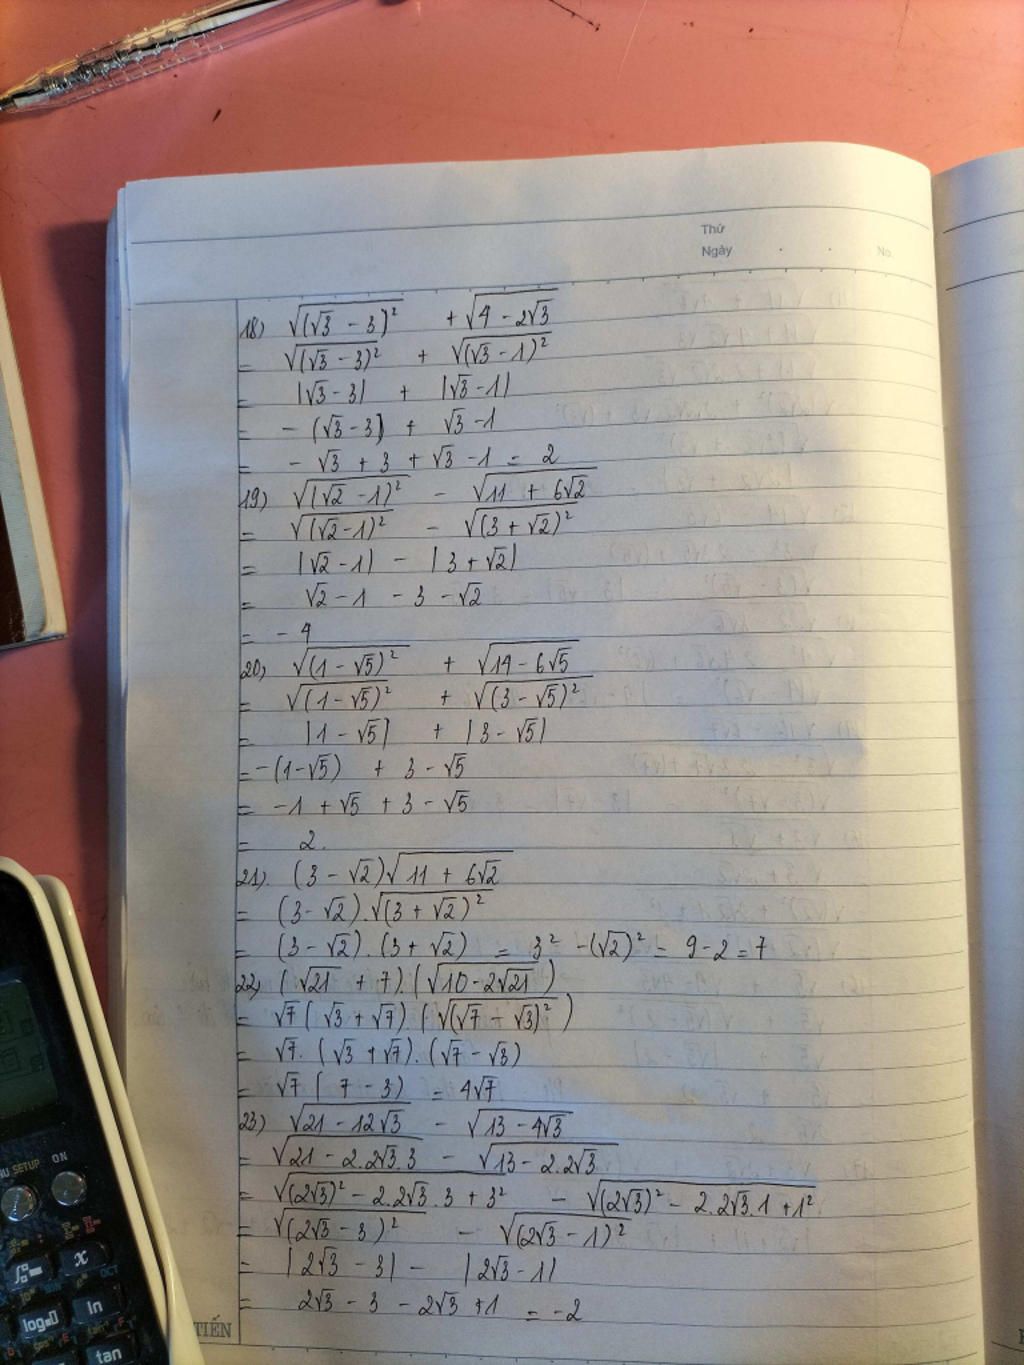 Thứ
Ngày
No.
18) √(√3 - 3)² + √4 - 2√3
= √(√3 - 3)² + √(√3 - 1)²
= |√3 - 3| + |√3 - 1|
= - (√3 - 3) + √3 - 1
= - √3 + 3 + √3 - 1 = 2
19) √(√2 - 1)² - √11 + 6√2
= √(√2 - 1)² - √(3 + √2)²
= |√2 - 1| - |3 + √2|
= √2 - 1 - 3 - √2
= - 4
20) √(1 - √5)² + √14 - 6√5
= √(1 - √5)² + √(3 - √5)²
= |1 - √5| + |3 - √5|
= -(1 - √5) + 3 - √5
= -1 + √5 + 3 - √5
= 2.
21). (3 - √2)√11 + 6√2
= (3 - √2).√(3 + √2)²
= (3 - √2).(3 + √2) = 3² - (√2)² = 9 - 2 = 7
22) (√21 + 7).(√10 - 2√21)
= √7(√3 + √7).(√(√7 - √3)²)
= √7.(√3 + √7).(√7 - √3)
= √7(7 - 3) = 4√7
23) √21 - 12√3 - √13 - 4√3
= √21 - 2.2√3.3 - √13 - 2.2√3
= √(2√3)² - 2.2√3.3 + 3² - √(2√3)² - 2.2√3.1 + 1²
= √(2√3 - 3)² - √(2√3 - 1)²
= |2√3 - 3| - |2√3 - 1|
= 2√3 - 3 - 2√3 + 1 = -2
TIẾN
SETUP ON
x
log
ln
tan